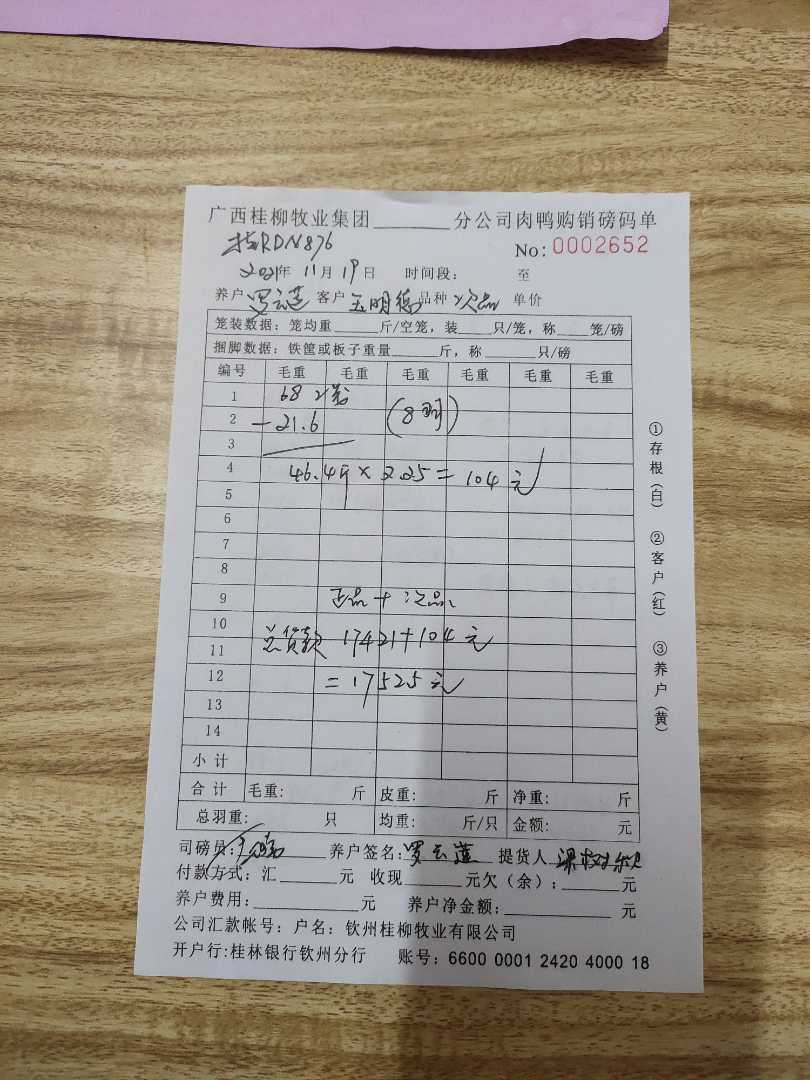 广西桂柳牧业集团______分公司肉鸭购销磅码单
RDN876
No: 0002652
2021年 11月 19日 时间段: 至
养户 罗云莲 客户 玉明德 品种 次品 单价
笼装数据: 笼均重____斤/空笼, 装____只/笼, 称____笼/磅
捆脚数据: 铁筐或板子重量____斤, 称____只/磅
编号 毛重 毛重 毛重 毛重 毛重 毛重
1 68 2笼
2 -21.6 (8羽)
3
4 46.4斤×2.25=104元
5
6
7
8
9 正品+次品
10
11 总货款 17421+104元
12 =17525元
13
14
小计
合计 毛重: 斤 皮重: 斤 净重: 斤
总羽重: 只 均重: 斤/只 金额: 元
司磅员: 养户签名: 罗云莲 提货人
付款方式: 汇____元 收现____元欠(余):____元
养户费用:____元 养户净金额:____元
公司汇款帐号: 户名: 钦州桂柳牧业有限公司
开户行:桂林银行钦州分行 账号: 6600 0001 2420 4000 18
①存根(白) ②客户(红) ③养户(黄)